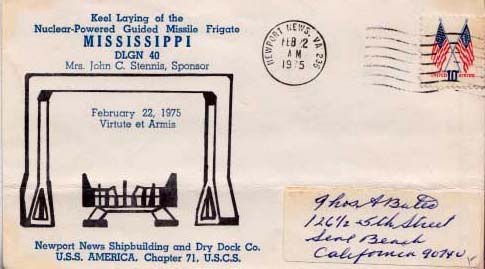 Keel Laying of the
Nuclear-Powered Guided Missile Frigate
MISSISSIPPI
DLGN 40
Mrs. John C. Stennis, Sponsor
February 22, 1975
Virtute et Armis
Newport News Shipbuilding and Dry Dock Co.
U.S.S. AMERICA, Chapter 71, U.S.C.S.
NEWPORT NEWS, VA 236
FEB 22
AM
1975
10
126½ - 5th Street
Seal Beach
California 90740